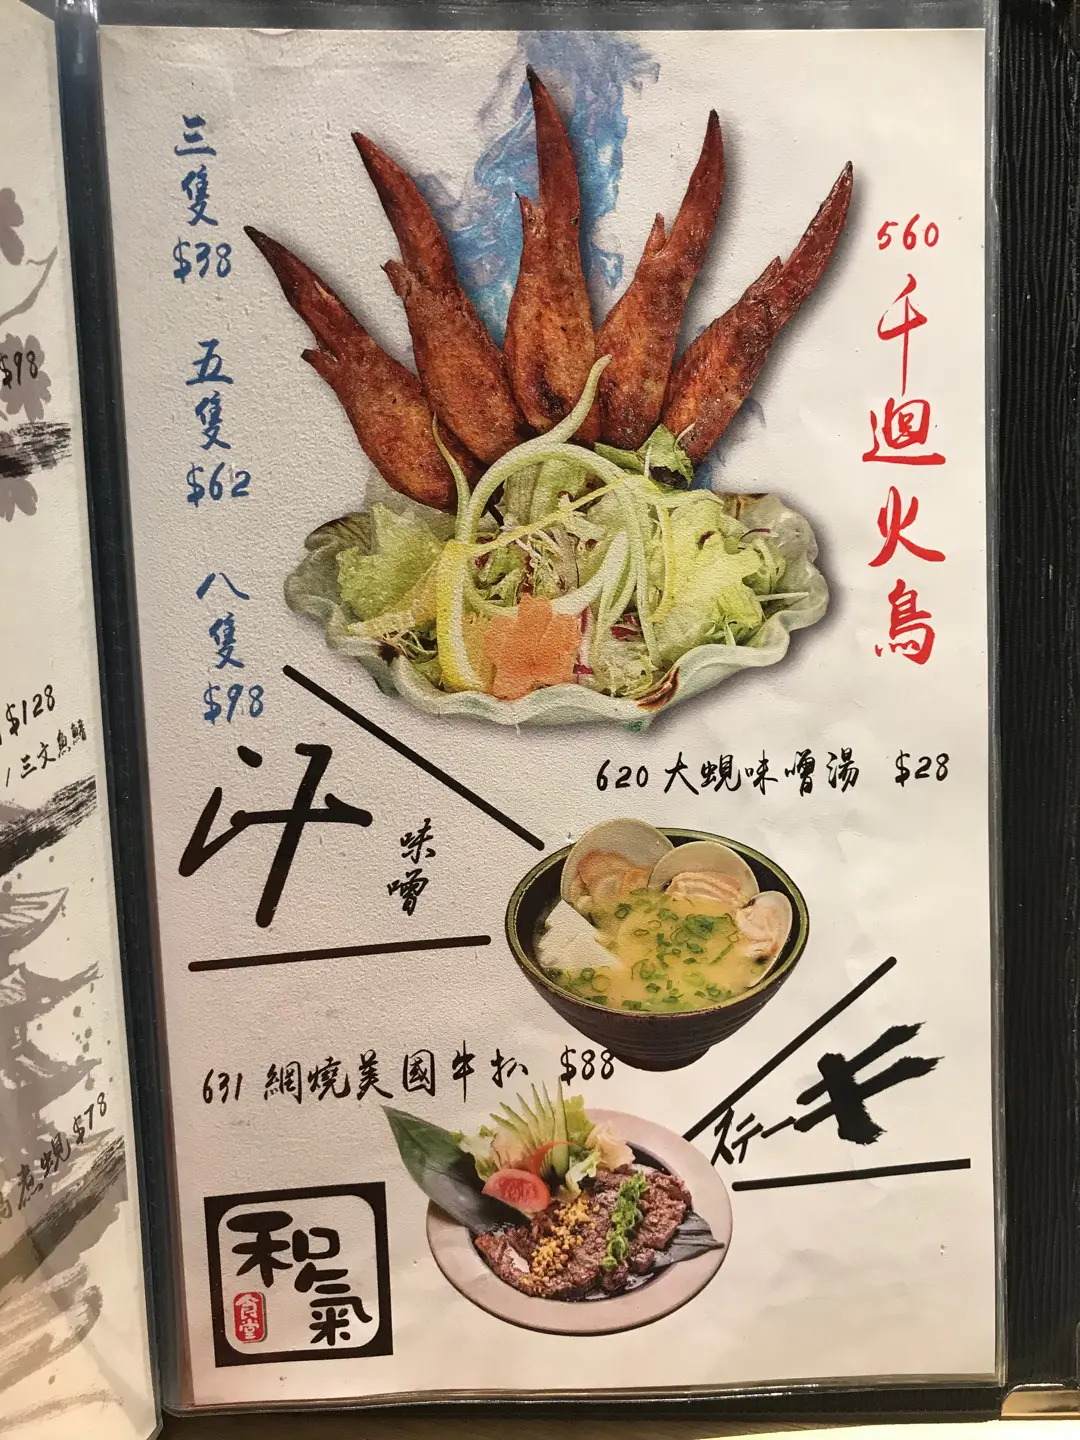 三隻
$38
五隻
$62
八隻
$98
560
千迴火鳥
620 大蜆味噌湯 $28
汁
味噌
631 網燒美國牛扒 $88
ステーキ
和氣
食堂
$98
$128
/三文魚鰭
煮蜆 $78